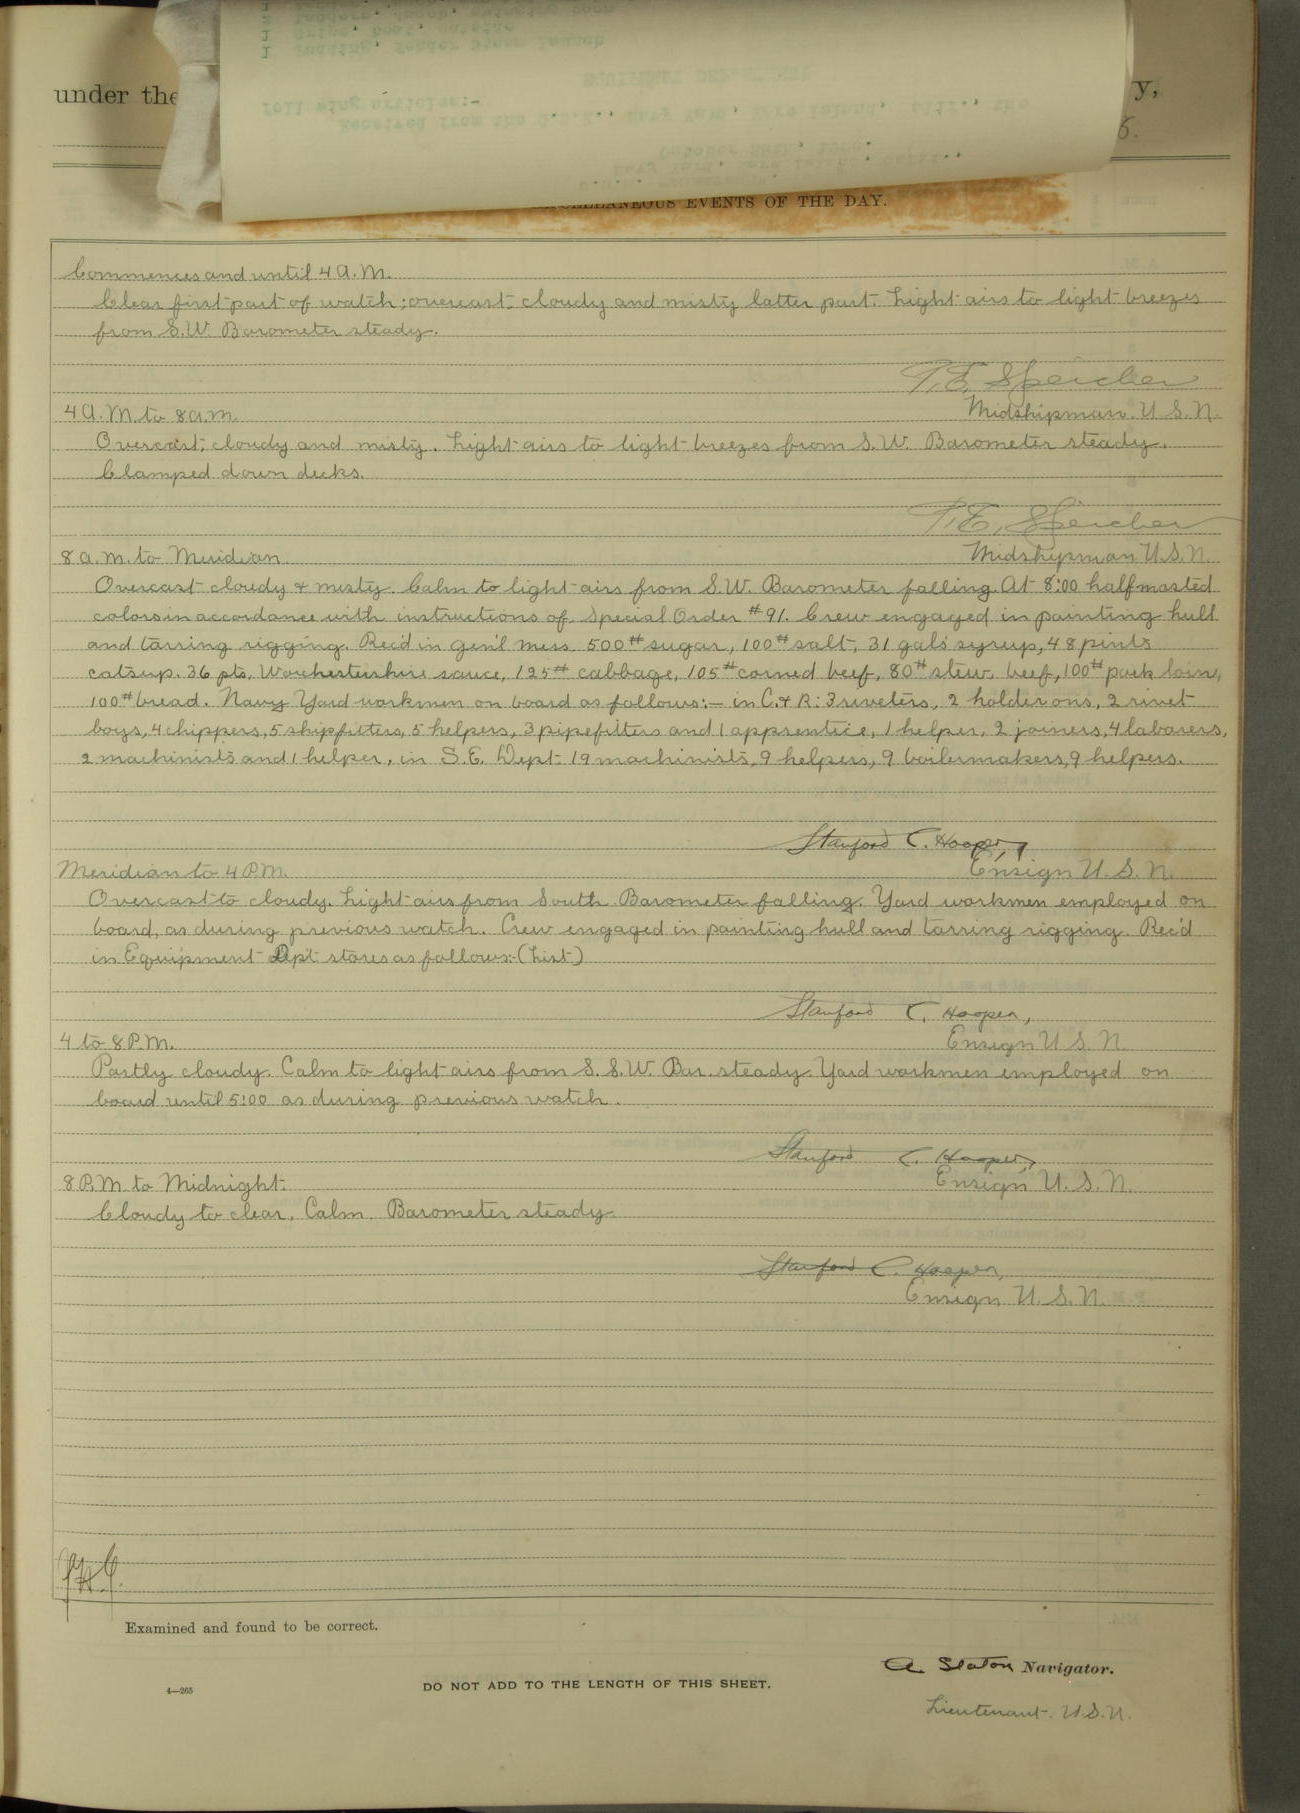 under the
y,
MISCELLANEOUS EVENTS OF THE DAY.
Commences and until 4 A.M.
Clear first part of watch; overcast, cloudy and misty latter part. Light airs to light breezes
from S.W. Barometer steady.
P.E. Speicher
Midshipman. U.S.N.
4 A.M. to 8 a.m.
Overcast, cloudy and misty. Light airs to light breezes from S.W. Barometer steady.
Clamped down decks.
P.E. Speicher
Midshipman U.S.N.
8 a.m. to Meridian
Overcast cloudy & misty Calm to light airs from S.W. Barometer falling. At 8:00 halfmasted
colors in accordance with instructions of Special Order #91. Crew engaged in painting hull
and tarring rigging. Rec'd in gen'l mess 500# sugar, 100# salt, 31 gals syrup, 48 pints
catsup. 36 pts, Worchestershire sauce, 125# cabbage, 105# corned beef, 80# stew beef, 100# pork loin,
100# bread. Navy Yard workmen on board as follows:— in C. & R: 3 riveters, 2 holder ons, 2 rivet
boys, 4 chippers, 5 shipfitters, 5 helpers, 3 pipefitters and 1 apprentice, 1 helper, 2 joiners, 4 laborers,
2 machinists and 1 helper, in S.E. Dept. 19 machinists, 9 helpers, 9 boilermakers, 9 helpers.
Stanford C. Hooper,
Ensign U.S.N.
Meridian to 4 P.M.
Overcast to cloudy. Light airs from South Barometer falling. Yard workmen employed on
board, as during previous watch. Crew engaged in painting hull and tarring rigging. Rec'd
in Equipment Dept stores as follows:-(List)
Stanford C. Hooper,
Ensign U.S.N.
4 to 8 P.M.
Partly cloudy. Calm to light airs from S.S.W. Bar. steady. Yard workmen employed on
board until 5:00 as during previous watch.
Stanford C. Hooper,
Ensign U.S.N.
8 P.M. to Midnight.
Cloudy to clear, Calm. Barometer steady.
Stanford C. Hooper,
Ensign U.S.N.
Examined and found to be correct.
A. Staton Navigator.
4—265
DO NOT ADD TO THE LENGTH OF THIS SHEET.
Lieutenant. U.S.N.